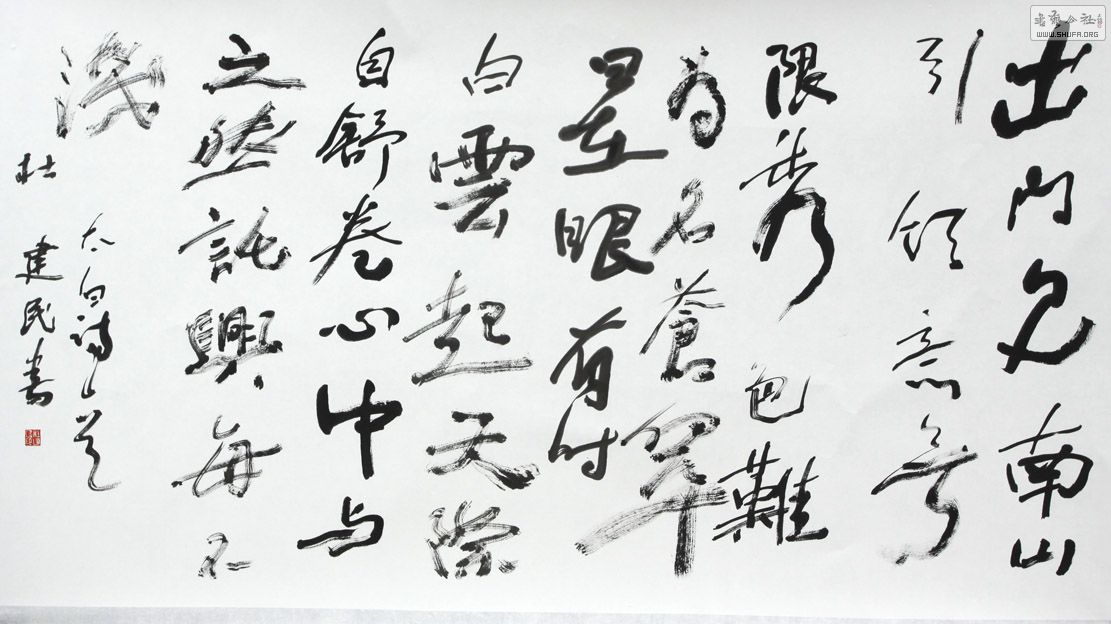 出门见南山
引领意无
限秀色難
为名蒼翠
日在眼有时
白雲起天際
自舒卷心中与
之然託興每不
淺
太白诗一首
杜建民書
書藝公社
WWW.SHUFA.ORG